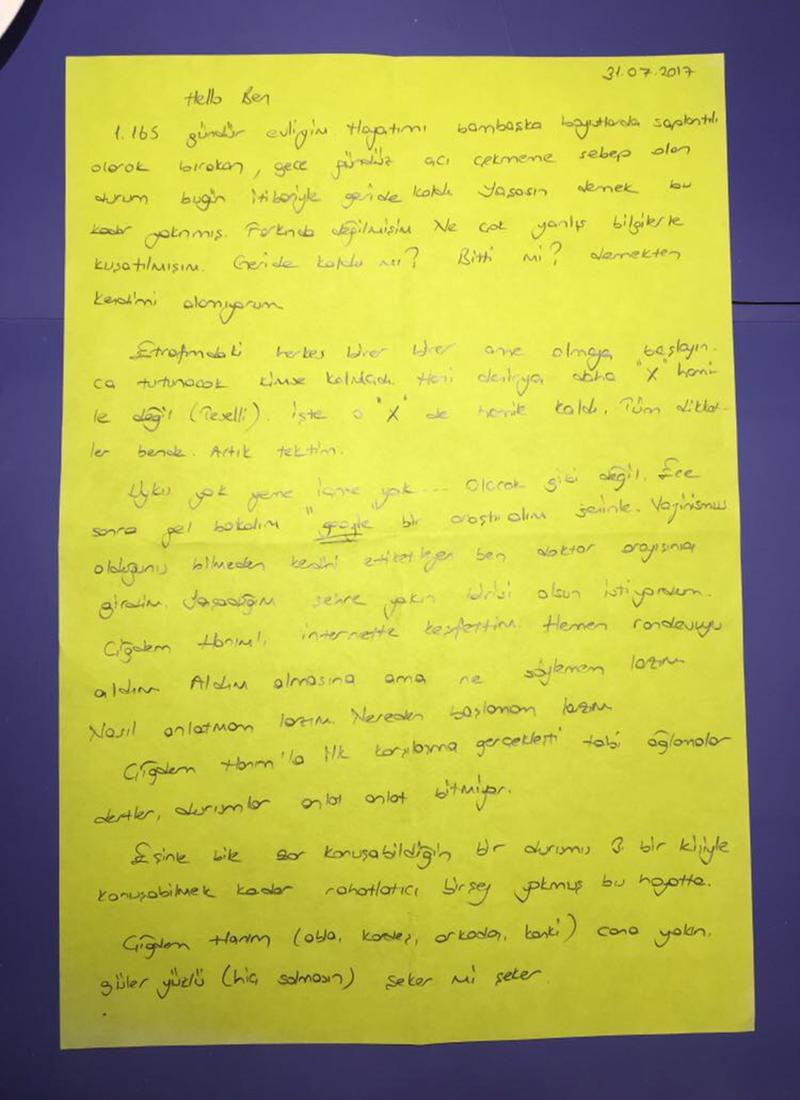 31.07.2017
Hello Ben
1.165 gündür evliyim Hayatımı bambaşka boyutlarda saplantılı
olarak bırakan, gece gündüz acı çekmeme sebep olan
durum bugün itibariyle geride kaldı Yaşasın demek bu
kadar yakınmış. Farkında değilmişim Ne çok yanlış bilgilerle
kuşatılmışım. Geride kaldı mı? Bitti mi? demekten
kendimi alamıyorum
Etrafımdaki herkes birer birer anne olmaya başlayın.
ca tutunacak kimse kalmadı. Hani derler ya daha "X" hami-
le değil (Teselli). İşte o "X" de hamile kaldı. Tüm dikkat-
ler bende. Artık tektim.
Uyku yok yeme içme yok... Olacak gibi değil. Ece
sonra gel bakalım "google" bir araştıralım seninle. Vajinismus
olduğunu bilmeden kendini etiketleyen ben doktor arayışına
girdim. Yaşadığım şehre yakın birisi olsun istiyordum.
Çiğdem Hanım'ı internette keşfettim. Hemen randevuyu
aldım Aldım almasına ama ne söylemem lazım
Nasıl anlatmam lazım. Nereden başlamam lazım
Çiğdem Hanım'la ilk karşılaşma gerçekleşti tabi ağlamalar
dertler, durumlar anlat anlat bitmiyor.
Eşinle bile zor konuşabildiğin bir durumu 3. bir kişiyle
konuşabilmek kadar rahatlatıcı birşey yokmuş bu hayatta.
Çiğdem Hanım (abla, kardeş, arkadaş, kanki) cana yakın,
güler yüzlü (hiç solmasın) şeker mi şeker.